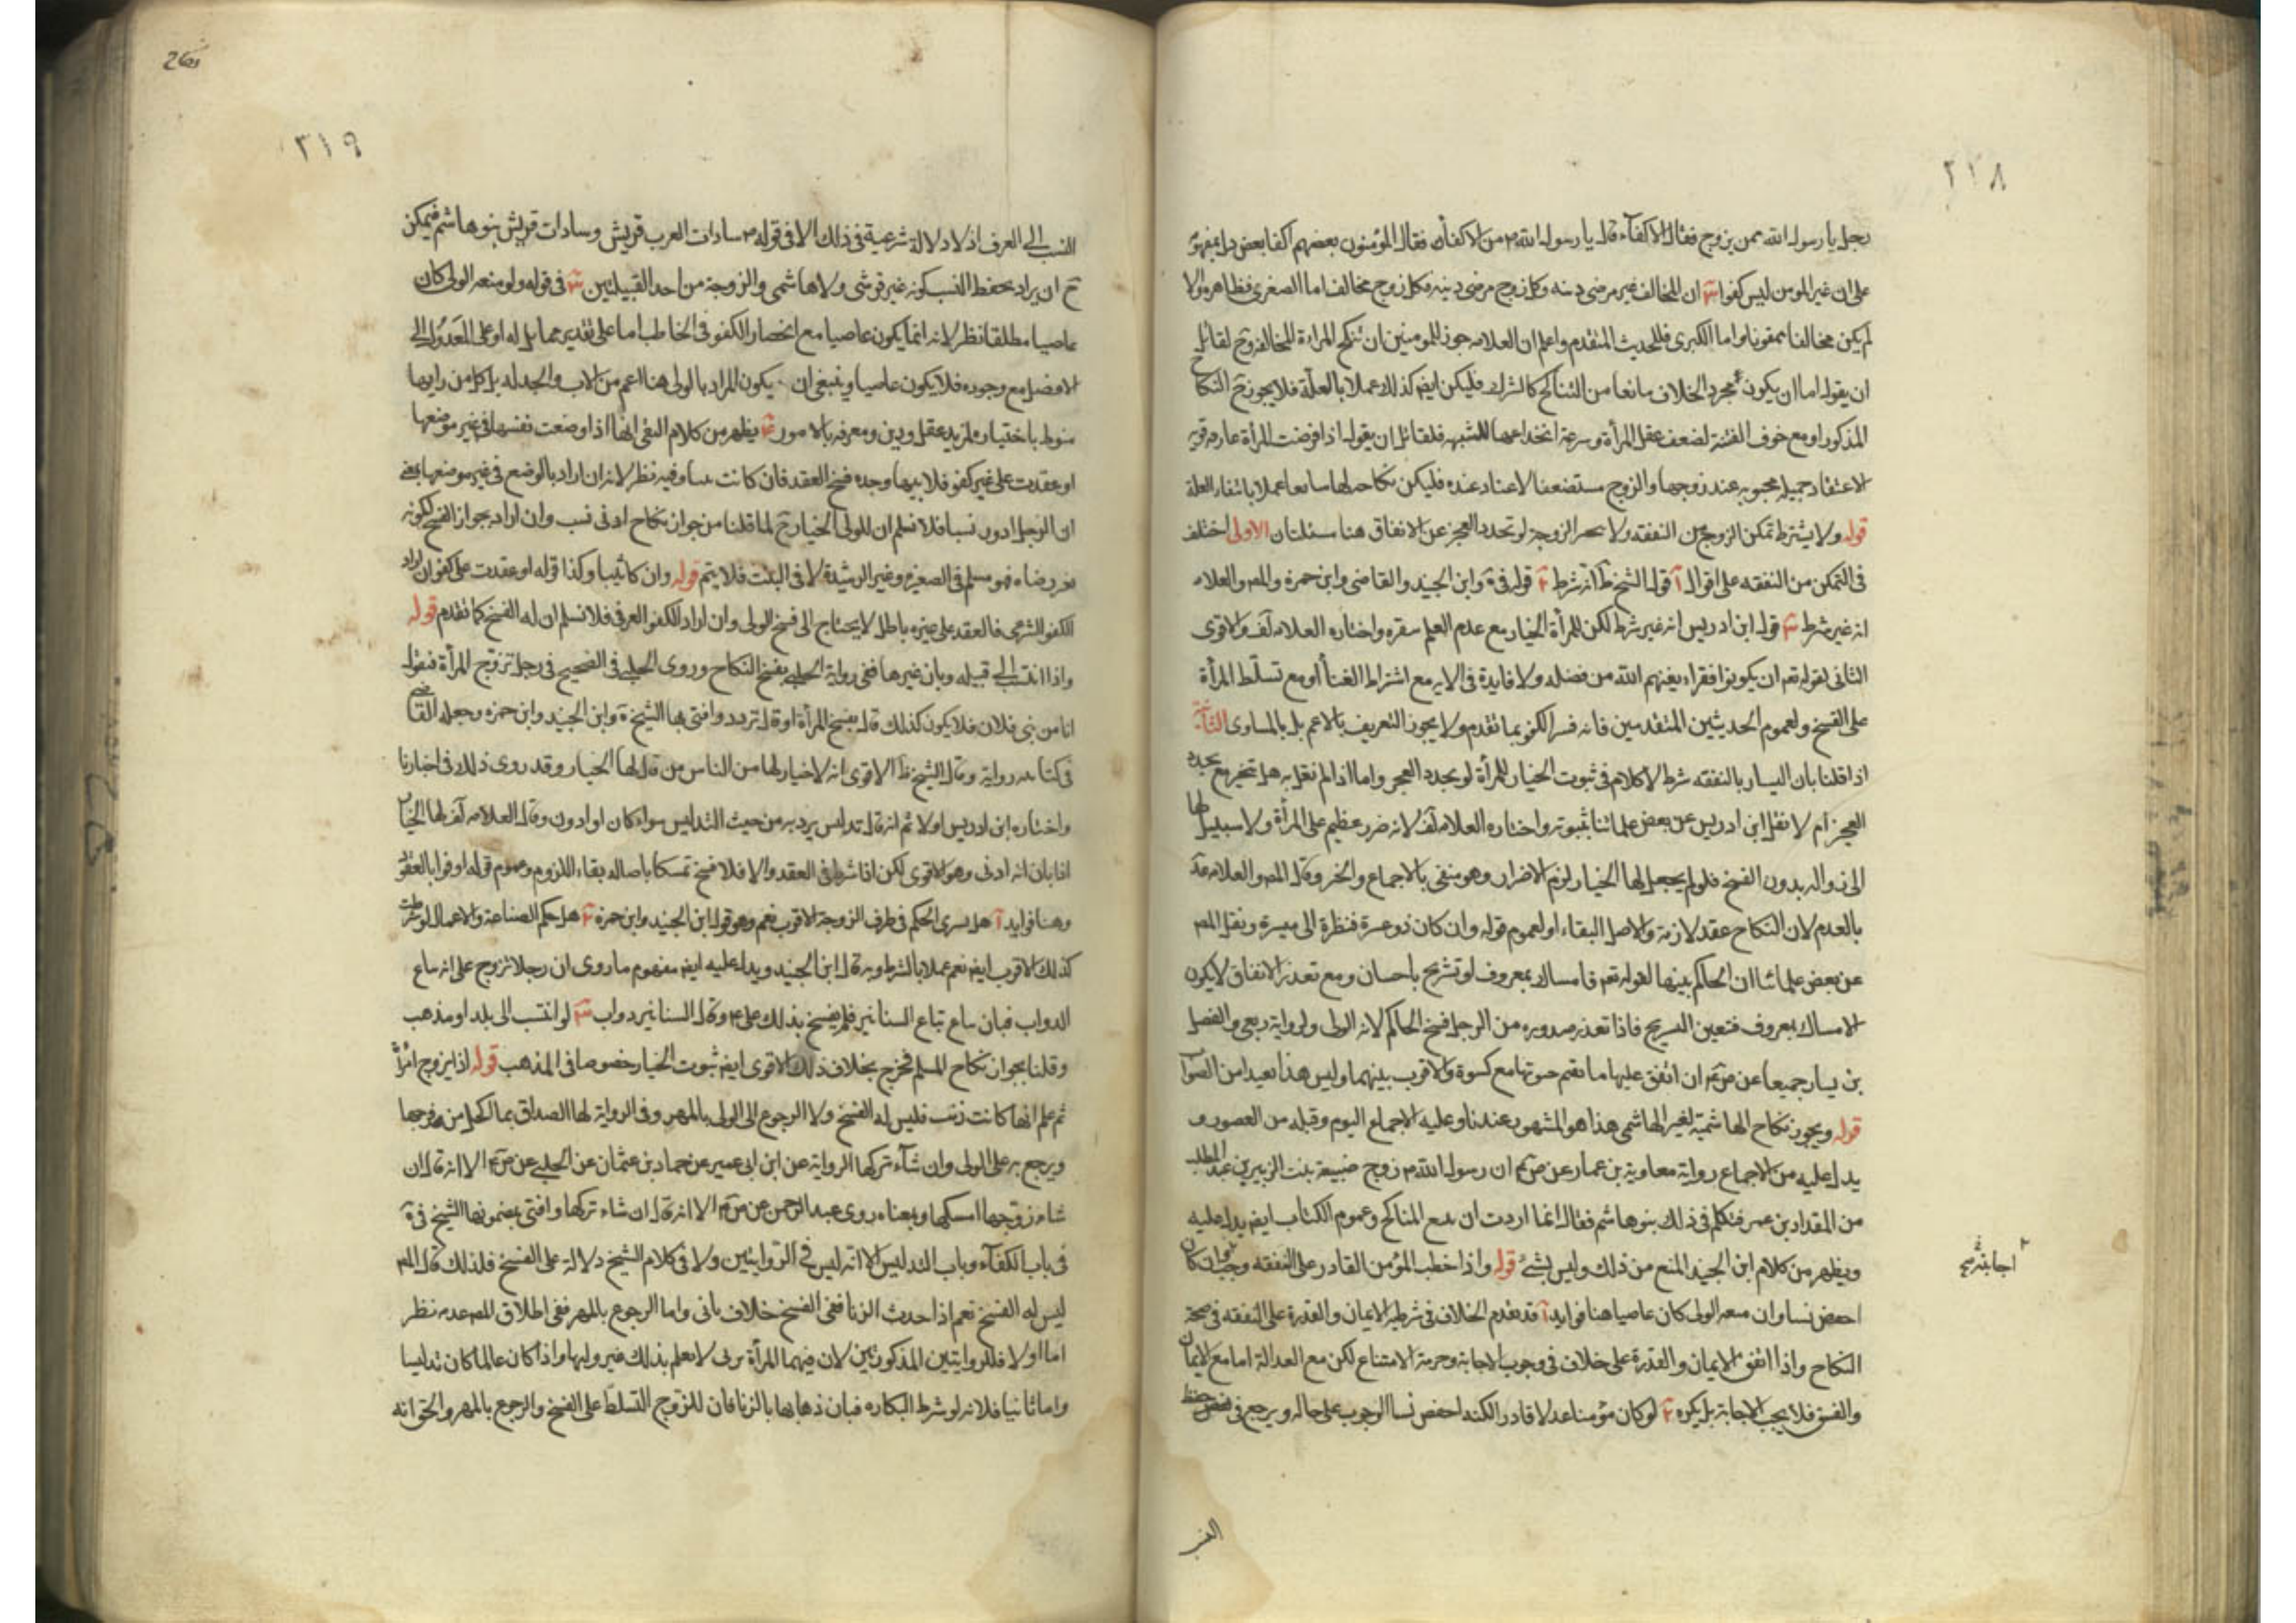 ٢١٨
رجل يا رسول الله ممن يزوج فقال الاكفآء قال يا رسول الله ص من الاكفآء فقال المؤمنون بعضهم اكفا بعض دل بمفهومه
على ان غير المومن ليس كفوا ان المخالف غير مرضى دينه وكل زوج مرضى دينه فكل زوج مخالف اما الصغرى فظاهرة والا
لم يكن مخالفا ممقوتا واما الكبرى فللحديث المتقدم واعلم ان العلامه جوز للمومنين ان تنكح المراة المخالفة وح لقائل
ان يقول اما ان يكون مجرد الخلاف مانعا من التناكح كالشرك فليكن ايضا كذلك عملا بالعلة فلا يجوز ح النكاح
المذكور او مع خوف الفتنة لضعف عقل المرأة وسرعة انخداعها للشبهه فلقائل ان يقول اذا فرضت المرأة عارفه قوية
الاعتقاد جميله محبوبه عند زوجها والزوج مستضعفا لا عناد عنده فليكن نكاحه لها سايغا عملا بانتفاء العلة
قوله ولا يشترط تمكن الزوج من النفقه ولا الزوجة لو تجدد العجز عن الانفاق هنا مسئلتان الاولى اختلف
فى التمكن من النفقه على اقوال آ قول الشيخ ط انه شرط قوله فى ية وابن الجنيد والقاضى وابن حمزة والمص والعلامه
انه غير شرط قول ابن ادريس انه غير شرط لكن للمرأة الخيار مع عدم العلم بفقره واختاره العلامه والاقوى
الثانى لقوله تعم ان يكونوا فقراء يغنهم الله من فضله ولا فايدة فى الايه مع اشتراط الغنا او مع تسلّط المرأة
على الفسخ ولعموم الحديثين المتقدمين فانه فسر الكفو بما تقدم ولا يجوز التعريف بالاعم بل بالمساوى الثانية
اذا قلنا بان اليسار بالنفقه شرط لا كلام فى ثبوت الخيار للمرأة لو تجدد العجز واما اذا لم نقل به هل تتخير مع تجدد
العجز ام لا نقل ابن ادريس عن بعض علمائنا ثبوته واختاره العلامه لانه ضرر عظيم على المرأة ولا سبيل لها
الى زواله بدون الفسخ فلو لم يجعل لها الخيار لزم الاضرار وهو منفى بالاجماع والخبر وقال المص والعلامه
بالعدم لان النكاح عقد لازم والاصل البقاء اولعموم قوله وان كان ذو عسرة فنظرة الى ميسرة ونقل المص
عن بعض علمائنا ان الحاكم بينها لقوله تعم فامساك بمعروف او تسريح باحسان ومع تعذر الانفاق لا يكون
الامساك بمعروف فتعين التسريح فاذا تعذر صدوره من الرجل فسخ الحاكم لانه الولى ولرواية ربعى والفضل
بن يسار جميعا عن ص ان انفق عليها ما تقيم حيوتها مع كسوة والا فرق بينهما وليس هذا بعيدا من الصواب
قوله ويجوز نكاح الهاشمية لغير الهاشمى هذا هو المشهور عندنا وعليه الاجماع اليوم وقبله من العصور و
يدل عليه من الاجماع رواية معاوية بن عمار عن ص ان رسول الله ص زوج ضبيعة بنت الزبير بن عبد المطلب
من المقداد بن عمر فتكلم فى ذلك بنو هاشم فقال انما اردت ان تتضع المناكح وعموم الكتاب ايضا يدل عليه
ويظهر من كلام ابن الجنيد المنع من ذلك وليس بشئ قوله واذا خطب المؤمن القادر على النفقه وجب وان كان
اجابته
اخفض نسبا وان منعه الولى كان عاصيا هنا فوايد آ قد تقدم الخلاف فى شرطية الايمان والقدرة على النفقه فى صحة
النكاح واذا اتفق الايمان والقدرة على خلاف فى وجوب الاجابة وحرمة الامتناع لكن مع العدالة اما مع الايمان
والفسق فلا يجب الاجابة بل يكره لو كان مؤمنا عدلا قادرا لكنه اخفض نسبا الوجوب على حاله ويرجع فى خفض
٢١٩
النسب الى العرف اذ لا دلالة شرعية فى ذلك الا فى قوله ص سادات العرب قريش وسادات قريش بنو هاشم فيمكن
ح ان يراد بخفض النسب كونه غير قرشى ولا هاشمى والزوجة من احد القبيلتين فى قوله ولو منعه الولى كان
عاصيا مطلقا نظر لانه انما يكون عاصيا مع انحصار الكفو فى الخاطب اما على تقدير مماثل له او على العدول الى
الافضل مع وجوده فلا يكون عاصيا وينبغى ان يكون المراد بالولى هنا اعم من الاب والجد له بل كل من رايها
منوط باختياره لمزيد عقل ودين ومعرفه بالامور يظهر من كلام الفقى انها اذا وضعت نفسها فى غير موضعها
او عقدت على غير كفو فلابيها وجده فسخ العقد فان كانت ثيبا وفيه نظر لانه ان اراد بالوضع فى غير موضعها
ان الرجل ادون نسبا فلا نسلم ان للولى الخيار ح لما قلنا من جواز نكاح ادنى نسب وان اراد بجواز الفسخ لكونه
بغير رضاه فهو مسلم فى الصغيره وغير الرشيدة لا فى البنت فلا يتم قوله وان كان ثيبا وكذا قوله او عقدت على كفو ان اراد
الكفو الشرعى فالعقد على غيره باطل لا يحتاج الى فسخ الولى وان اراد الكفو العرفى فلا نسلم ان له الفسخ كما تقدم قوله
واذا انتسب الى قبيله وبان غيرها ففى رواية الحلبى يفسخ النكاح وروى الحلبى فى الصحيح فى رجل تزوج المرأة فيقول
انا من بنى فلان فلا يكون كذلك قال يفسخ المرأة او قال ترد وافتى بها الشيخ فى ية وابن الجنيد وابن حمزه وجعله القاضى
فى كتابه رواية وقال الشيخ ط الاقوى انه لا خيار لها من الناس من قال لها الخيار وقد روى ذلك فى اخبارنا
واختاره ابن ادريس اولا ثم انه قال تدليس يرد به من حيث التدليس سواء كان او ادون وقال العلامه لها الخيار
اذا بان انه ادنى وهو الاقوى لكن اذا شرط فى العقد والا فلا فسخ تمسكا باصاله بقاء اللزوم وعموم قوله اوفوا بالعقود
وهنا فوايد آ هل يسرى الحكم فى طرف الزوجة الاقرب نعم وهو قول ابن الجنيد وابن حمزة هل حكم الصناعة والاعمال لو شرطت
كذلك الاقرب ايضا نعم عملا بالشرط وبه قال ابن الجنيد ويدل عليه ايضا مفهوم ما روى ان رجلا تزوج على انه يباع
الدواب فبان يباع تباع السنانير فلم يفسخ بذلك على ع وقال السنانير دواب لو انتسب الى بلد او مذهب
وقلنا بجواز نكاح المسلم فخرج بخلاف ذلك الاقوى ايضا ثبوت الخيار خصوصا فى المذهب قوله اذا يزوج امرأة
ثم علم انها كانت زنت فليس له الفسخ ولا الرجوع الى الولى بالمهر وفى الرواية لها الصداق بما استحل من فرجها
ويرجع به على الولى وان شآء تركها الرواية عن ابن ابى عمير عن حماد بن عثمان عن الحلبى عن ص الا انه قال ان
شاء زوجها امسكها وبمعناه روى عبد الرحمن عن ص الا انه قال ان شاء تركها وافتى بمضمونها الشيخ فى ية
فى باب الكفآء وباب التدليس الا انه ليس فى الروايتين ولا فى كلام الشيخ دلالة على الفسخ فلذلك قال المص
ليس له الفسخ نعم اذا حدث الزنا ففى الفسخ خلاف ياتى واما الرجوع بالمهر ففى اطلاق المص عدمه نظر
اما اولا فللروايتين المذكورتين لان فيهما المرأة تزنى لا يعلم بذلك غير وليها واذا كان عالما كان تدليسا
واما ثانيا فلانه لو شرط البكاره فبان ذهابها بالزنا فان للزوج التسلط على الفسخ والرجوع بالمهر والحق انه